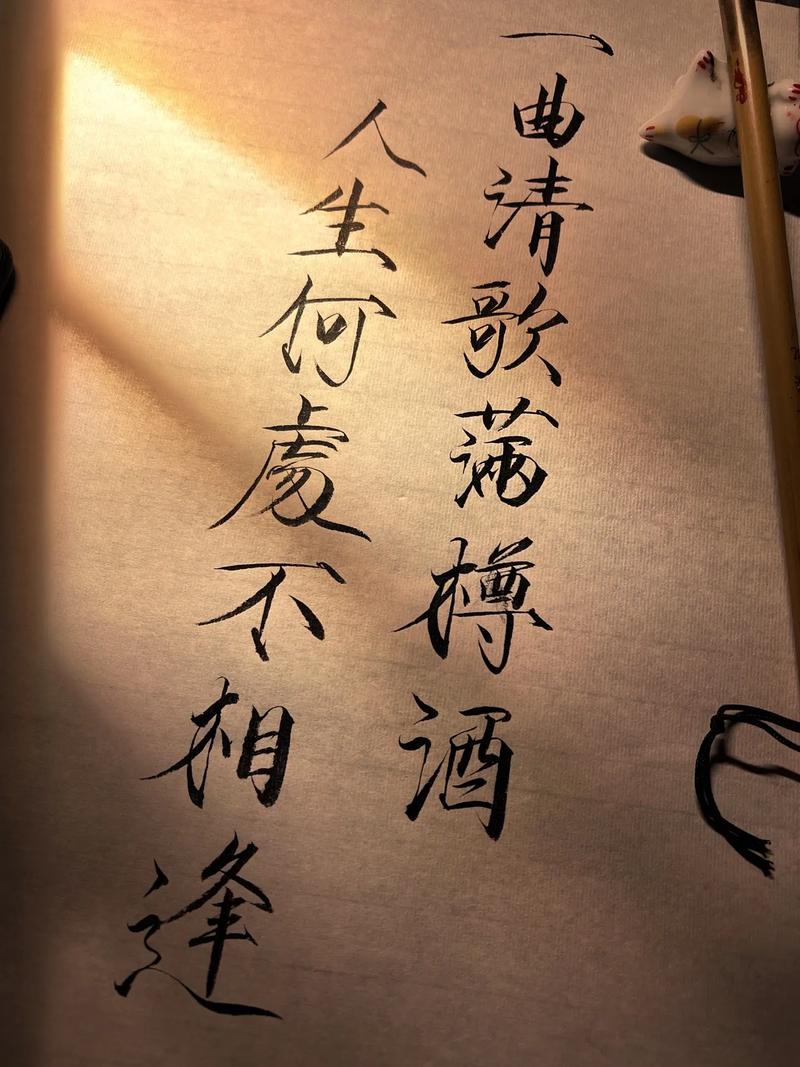 一曲清歌滿樽酒
人生何處不相逢